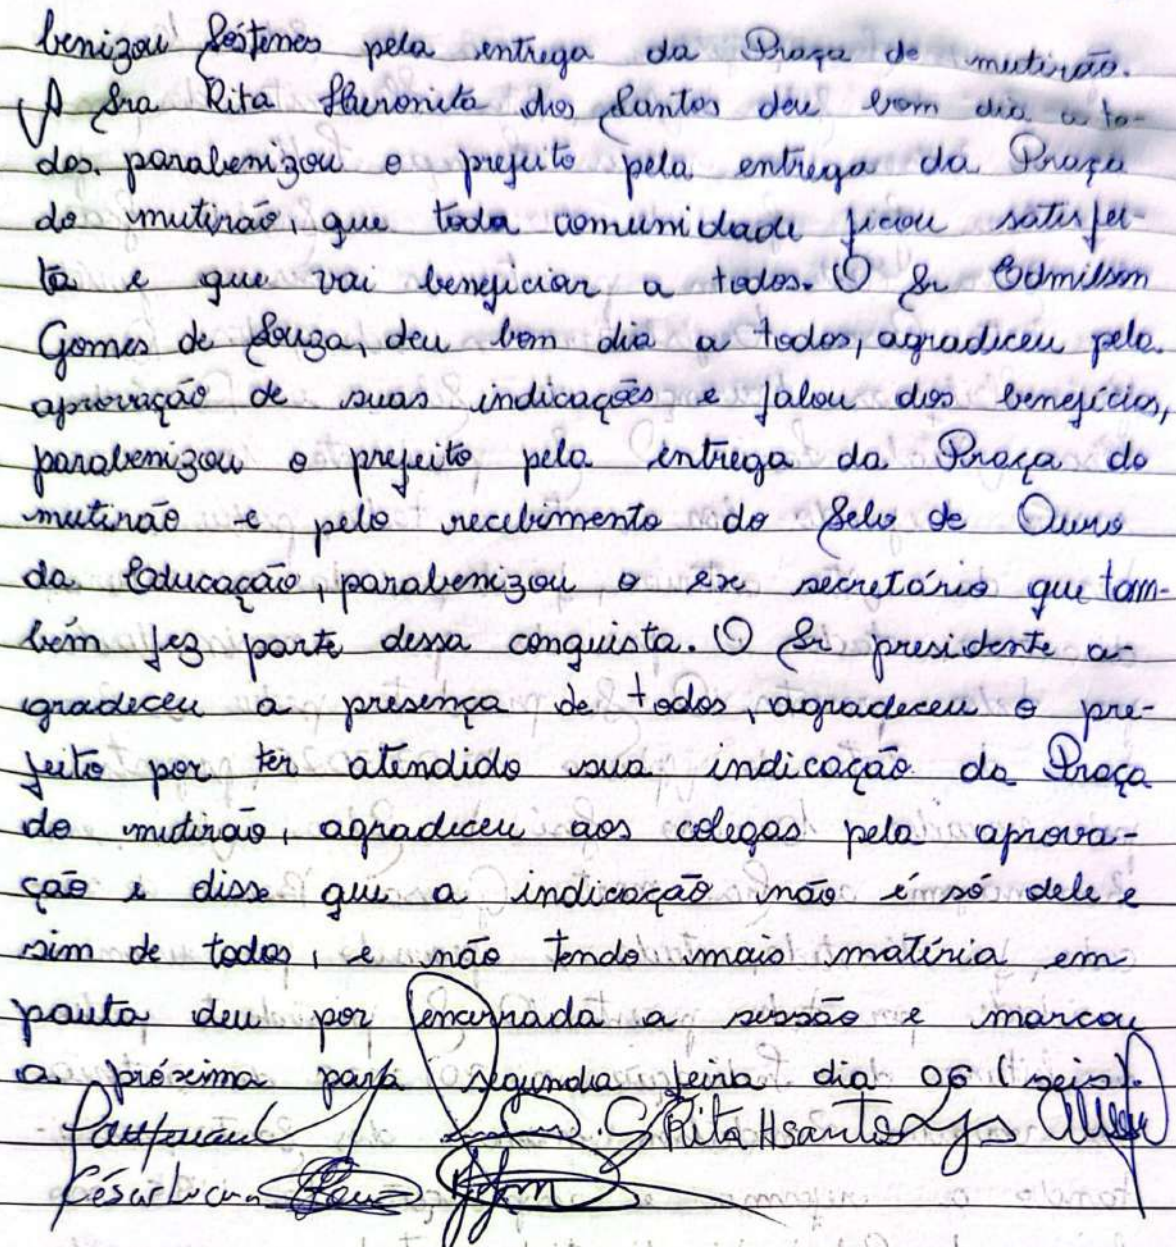 benizou Sóstenes pela entrega da Praça do mutirão.
A Sra Rita Huronita dos Santos deu bom dia a to-
dos. parabenizou o prefeito pela entrega da Praça
do mutirão, que toda comunidade ficou satisfei-
ta e que vai beneficiar a todos. O Sr Edmilson
Gomes de Souza, deu bom dia a todos, agradeceu pela
aprovação de suas indicações e falou dos benefícios,
parabenizou o prefeito pela entrega da Praça do
mutirão e pelo recebimento do Selo de Ouro
da Educação, parabenizou o ex secretário que tam-
bém fez parte dessa conquista. O Sr presidente a-
gradeceu a presença de todos, agradeceu o pre-
feito por ter atendido sua indicação da Praça
do mutirão, agradeceu aos colegas pela aprova-
ção e disse que a indicação não é só dele e
sim de todos, e não tendo mais matéria em
pauta deu por encerrada a sessão e marcou
a próxima para segunda feira dia 06 (seis).
Rita H Santos
César Lucena